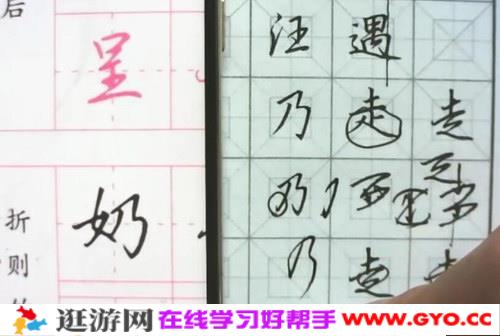 后
呈
奶
折
则
汪 遇
乃 走 走
乃 西
乃 走
逛游网 在线学习好帮手 WWW.GYO.CC